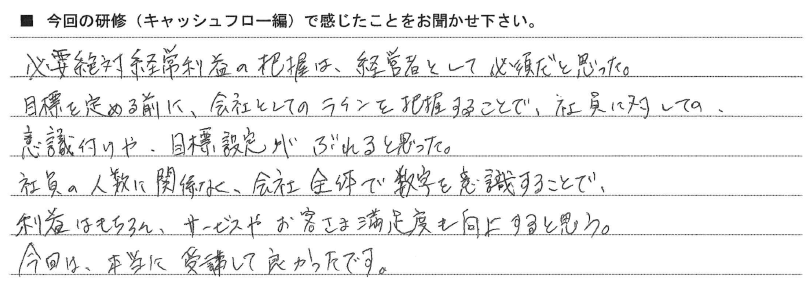 ■ 今回の研修（キャッシュフロー編）で感じたことをお聞かせ下さい。
必要絶対経常利益の把握は、経営者として必須だと思った。
目標を定める前に、会社としてのラインを把握することで、社員に対しての、
意識付けや、目標設定が ぶれると思った。
社員の人数に関係なく、会社全体で数字を意識することで、
利益はもちろん、サービスやお客さま満足度も向上すると思う。
今回は、本当に受講して良かったです。